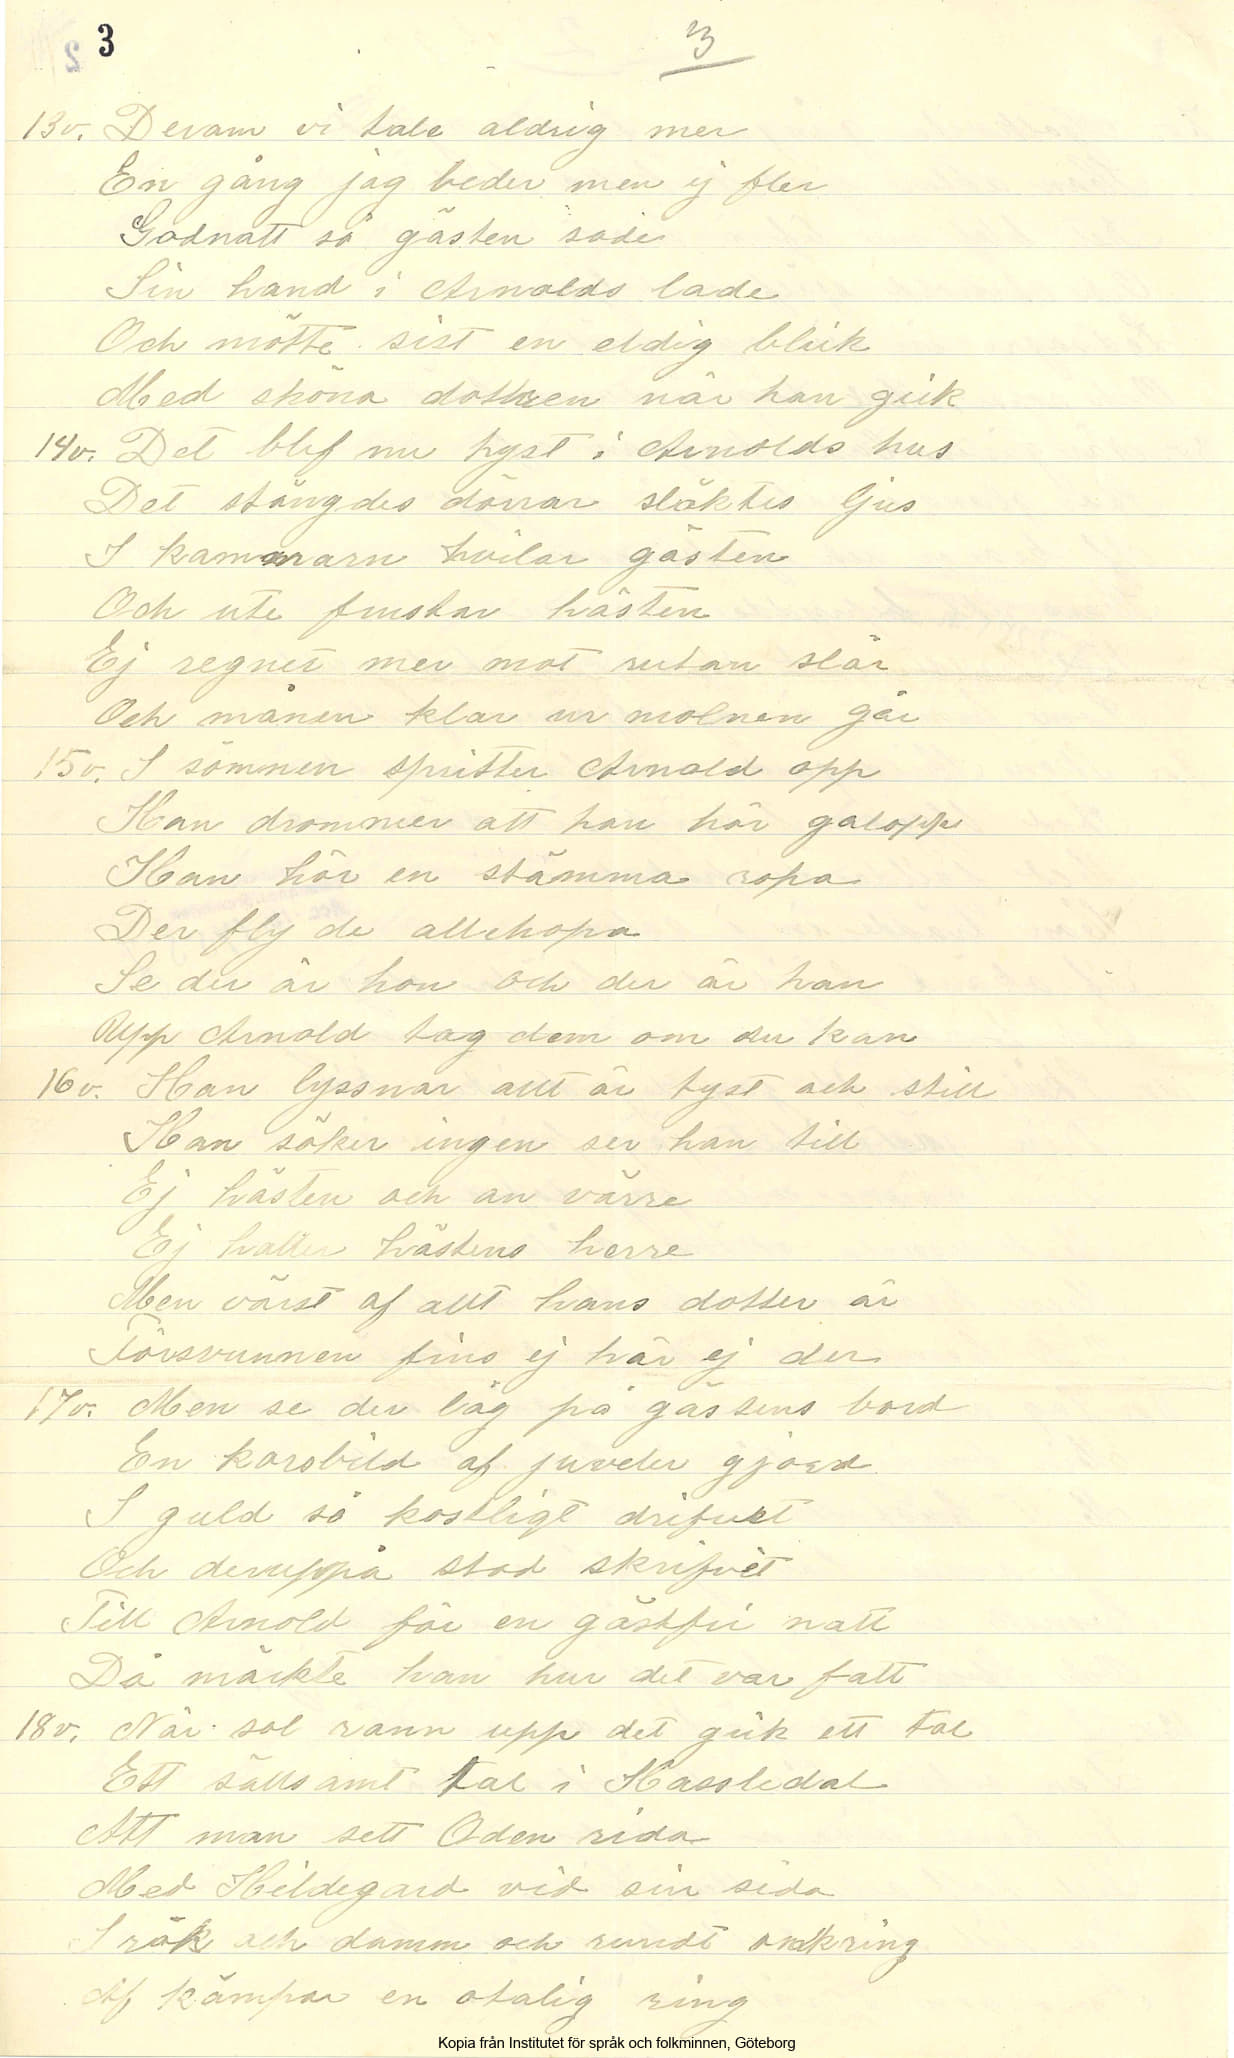 3
3
13v. Derom vi tala aldrig mer
En gång jag beder men ej fler
Godnatt så gästen sade
Sin hand i Arnolds lade
Och mötte sist en eldig blick
Med sköna dottren när han gick
14v. Det blef nu tyst i Arnolds hus
Det stängdes dörrar släktes ljus
I kammararn hvilar gästen
Och ute frustar hästen
Ej regnet mer mot rutan slår
Och månen klar ur molnen går
15v. I sömnen spritter Arnold opp
Han drommer att han hör galopp
Han hör en stämma ropa
Der fly de allehopa
Se der är hon och der är han
Upp Arnold tag dem om du kan
16v. Han lyssnar allt är tyst och still
Han söker ingen ser han till
Ej hästen och an värre
Ej heller hästens herre
Men värst af allt hans dotter är
Försvunnen fins ej här ej der
17v. Men se der låg på gästens bord
En korsbild af juveler gjord
I guld så kostligt drifvet
Och deruppå stod skrifvet
Till Arnold för en gästfri natt
Då märkte han hur det var fatt
18v. När sol rann upp det gick ett tal
Ett sällsamt tal i Hassledal
Att man sett Oden rida
Med Hildegard vid sin sida
I rök och damm och rundt omkring
Af kämpar en otalig ring
Kopia från Institutet för språk och folkminnen, Göteborg